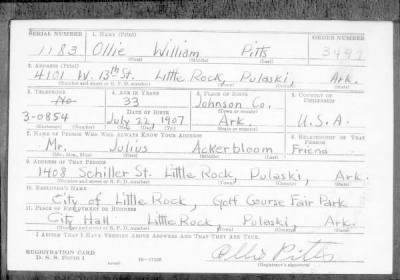 SERIAL NUMBER 1. NAME (Print) ORDER NUMBER
1183 Ollie William Pitts
(First) (Middle) (Last)
2. ADDRESS (Print)
4101 W. 13th St. Little Rock, Pulaski, Ark.
(Number and street or R. F. D. number) (Town) (County) (State)
3. TELEPHONE 4. AGE IN YEARS 5. PLACE OF BIRTH 6. COUNTRY OF CITIZENSHIP
No 33 Johnson Co.
DATE OF BIRTH (Town or county)
3-0854 July 22, 1907 Ark. U.S.A.
(Exchange) (Number) (Mo.) (Day) (Yr.) (State or country)
7. NAME OF PERSON WHO WILL ALWAYS KNOW YOUR ADDRESS 8. RELATIONSHIP OF THAT PERSON
Mr. Julius Ackerbloom Friend
(Mr., Mrs., Miss) (First) (Middle) (Last)
9. ADDRESS OF THAT PERSON
1408 Schiller St. Little Rock, Pulaski, Ark.
(Number and street or R. F. D. number) (Town) (County) (State)
10. EMPLOYER'S NAME
City of Little Rock, Golf Course Fair Park
11. PLACE OF EMPLOYMENT OR BUSINESS
City Hall. Little Rock, Pulaski, Ark.
(Number and street or R. F. D. number) (Town) (County) (State)
I AFFIRM THAT I HAVE VERIFIED ABOVE ANSWERS AND THAT THEY ARE TRUE.
REGISTRATION CARD
D. S. S. Form 1 16-17105 Ollie Pitts
(Registrant's signature)